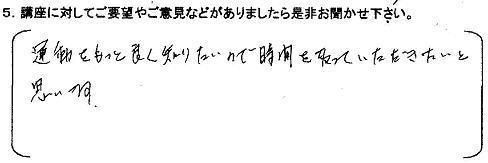 5. 講座に対してご要望やご意見などがありましたら是非お聞かせ下さい。
運動をもっと良く知りたいので時間を取っていただきたいと
思います。